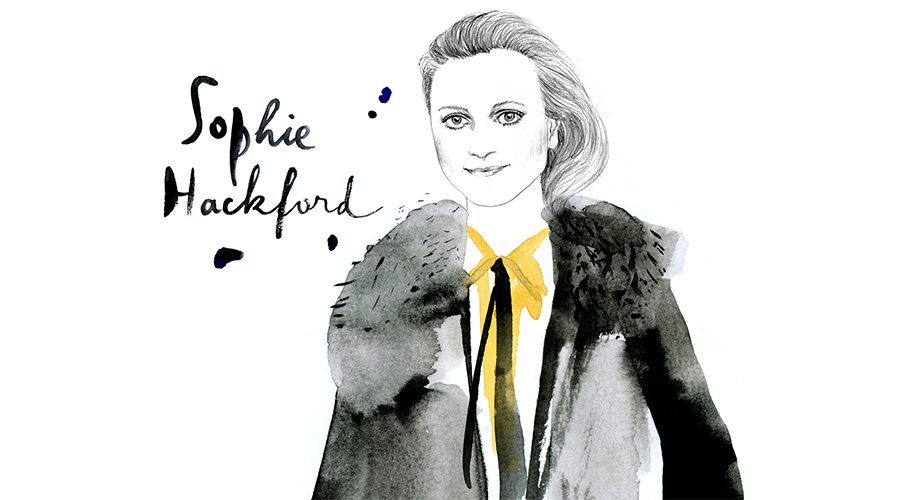 Sophie
Hackford